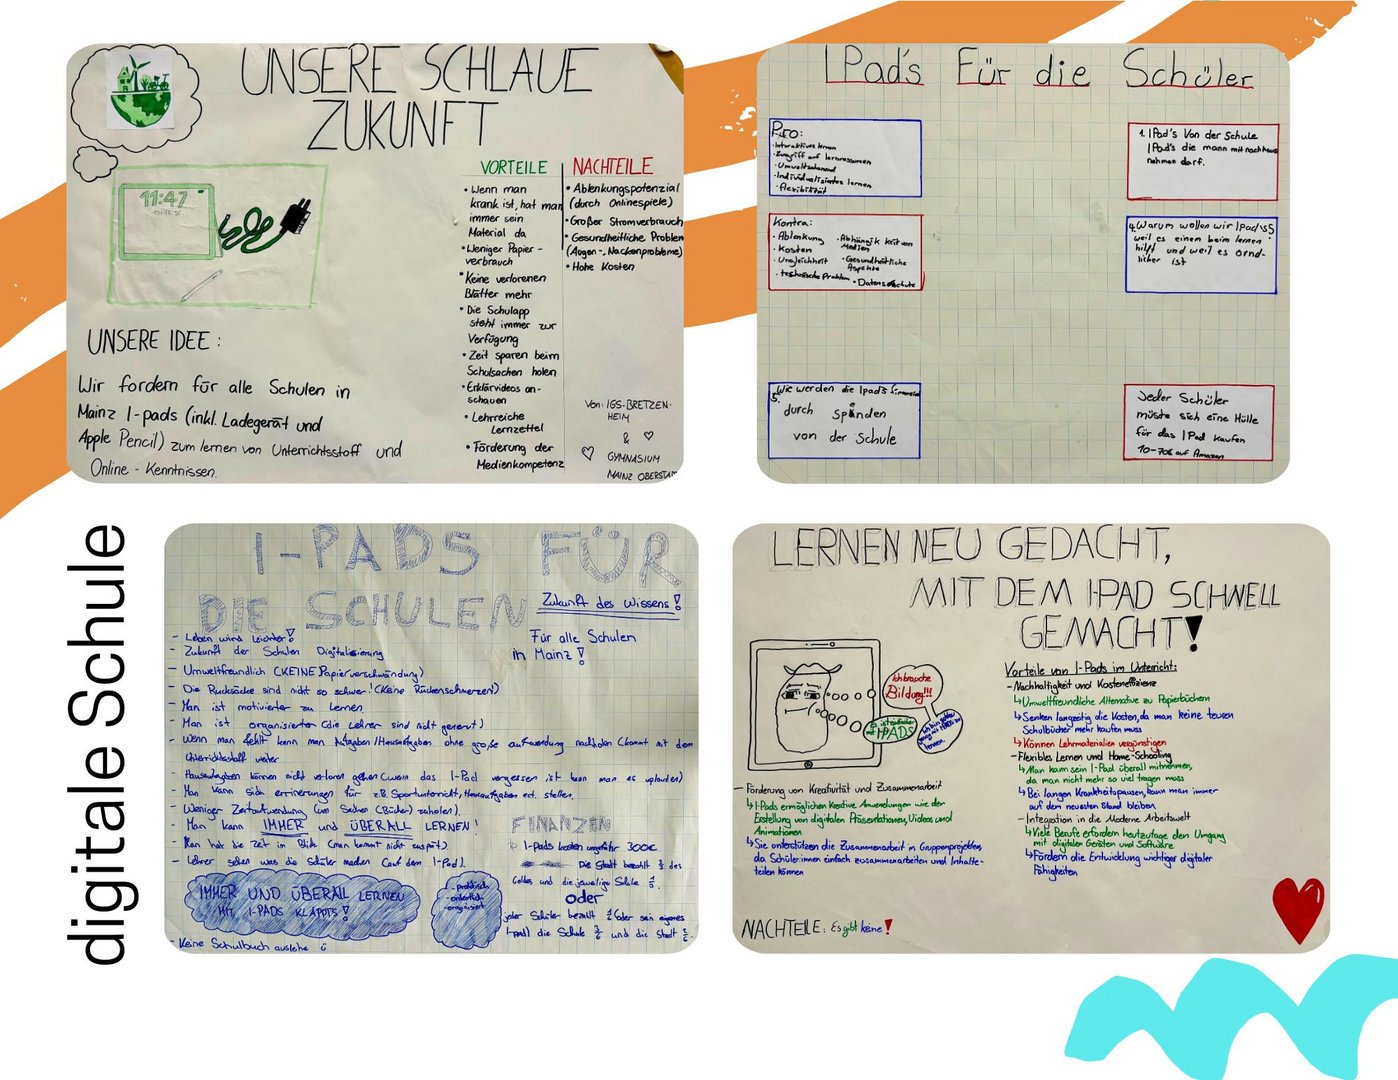 UNSERE SCHLAUE
ZUKUNFT
11:47
VORTEILE
• Wenn man
krank ist, hat man
immer sein
Material da
• Weniger Papier-
verbrauch
• Keine verlorenen
Blätter mehr
• Die Schulapp
steht immer zur
Verfügung
• Zeit sparen beim
Schulsachen holen
• Erklärvideos an-
schauen
• Lehrreiche
Lernzettel
• Förderung der
Medienkompetenz
NACHTEILE
• Ablenkungspotenzial
(durch Onlinespiele)
• Großer Stromverbrauch
• Gesundheitliche Problem
(Augen-, Nackenprobleme)
• Hohe Kosten
UNSERE IDEE:
Wir fordern für alle Schulen in
Mainz I-pads (inkl. Ladegerät und
Apple Pencil) zum lernen von Unterrichtsstoff und
Online - Kenntnissen.
Von: IGS-BRETZEN-
HEIM
&
GYMNASIUM
MAINZ OBERSTADT
IPad's Für die Schüler
Pro:
• Interaktives lernen
• Zugriff auf lernressourcen
• Umweltschonend
• Individualisiertes lernen
• flexibilität
Kontra:
• Ablenkung
• Kosten
• Ungleichheit
• technische Problem
• Abhängikkeit von
Medien
• Gesundheitliche
Aspekte
• Datenschutz
1. IPad's Von der Schule
IPad's die mann mit nachhaus
nehmen darf.
4. Warum wollen wir IPad's
weil es einem beim lernen
hilft und weil es ornd-
licher ist
5. Wie werden die Ipad's
durch spenden
von der Schule
Jeder Schüler
müsste sich eine Hülle
für das IPad kaufen
10-70€ auf Amazon
digitale Schule
I-PADS FÜR
DIE SCHULEN
Zukunft des Wissens!
Für alle Schulen
in Mainz!
- Leben wird leichter!
- Zukunft der Schulen Digitalisierung
- Umweltfreundlich (KEINE Papierverschwändung)
- Die Rucksäcke sind nicht so schwer! (Keine Rückenschmerzen!)
- Man ist motivierter zu Lernen
- Man ist organisierter (die Lehrer sind nicht genervt)
- Wenn man fehlt kann man Aufgaben/Hausaufgaben ohne große aufwendung nachholen (kommt mit dem
Unterrichtsstoff weiter
- Hausaufgaben können nicht verloren gehen (wenn das I-Pad vergessen ist kann man es uploaden)
- Man kann sich errinerungen für z.B. Sportunterricht, Hausaufgaben ect. stellen.
- Weniger Zeitaufwendung (um Sachen (Bücher) zuholen).
- Man kann IMMER und ÜBERALL LERNEN!
- Man hat die Zeit im Blick (man kommt nicht zuspät)
- Lehrer sehen was die Schüler machen (auf dem I-Pad).
IMMER UND ÜBERALL LERNEN
MIT I-PADS KLAPPTS!
- praktisch
- ordentlich
- organisiert
- Keine Schulbuch ausleihe
FINANZEN
I-pads kosten ungefähr 300€
Die Stadt bezahlt des
Geldes und die jeweilige Schule
oder
jeder Schüler bezahlt (oder sein eigenes
I-pad) die Schule und die Stadt
LERNEN NEU GEDACHT,
MIT DEM I-PAD SCHNELL
GEMACHT!
Ich brauche
Bildung!!!
IPADS
Vorteile von I-Pads im Unterricht:
- Nachhaltigkeit und Kosteneffizienz
↳ Umweltfreundliche Alternative zu Papierbüchern
↳ Senken langzeitig die Kosten, da man keine teuren
Schulbücher mehr kaufen muss
↳ Können Lehrmaterialien vergünstigen
- Flexibles Lernen und Home-Schooling
↳ Man kann sein I-Pad überall mitnehmen,
da man nicht mehr so viel tragen muss
↳ Bei langen Krankheitspausen, kann man immer
auf dem neuesten Stand bleiben
- Integration in die Moderne Arbeitswelt
↳ Viele Berufe erfordern heutzutage den Umgang
mit digitalen Geräten und Software
↳ Fördern die Entwicklung wichtiger digitaler
Fähigkeiten
- Förderung von Kreativität und Zusammenarbeit
↳ I-Pads ermöglichen Kreative Anwendungen wie der
Erstellung von digitalen Präsentationen, Videos und
Animationen
↳ Sie unterstützen die Zusammenarbeit in Gruppenprojekten,
da Schüler:innen einfach zusammenarbeiten und Inhalte-
teilen können
NACHTEILE: Es gibt keine!